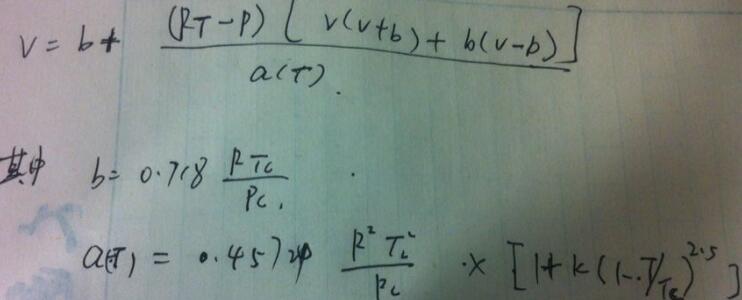 V = b + (RT-P)[V(V+b)+b(V-b)] / a(T).
其中 b = 0.718 RTc / Pc.
a(T) = 0.45724 R²Tc² / Pc · × [1+k(1-T/Tc)^2.5]